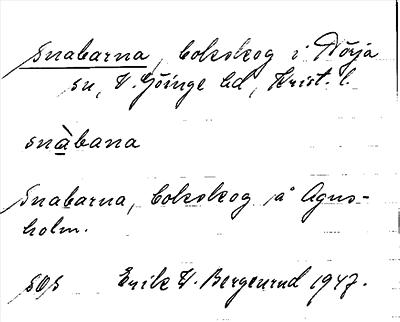 Snabarna, bokskog i Nörja
sn, V. Göinge hd, Krist. l.
snàbana
Snabarna, bokskog å Agus-
holm.
sOs Erik V. Bergenrud 1947.